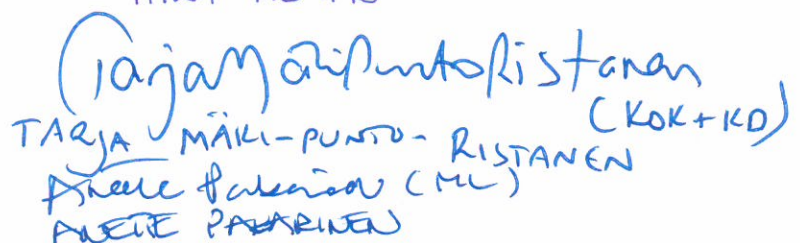 Tarja Mäki-Punto-Ristanen
(KOK+KD)
TARJA MÄKI-PUNTO-RISTANEN
Anette Pakarinen (ML)
ANETTE PAKARINEN